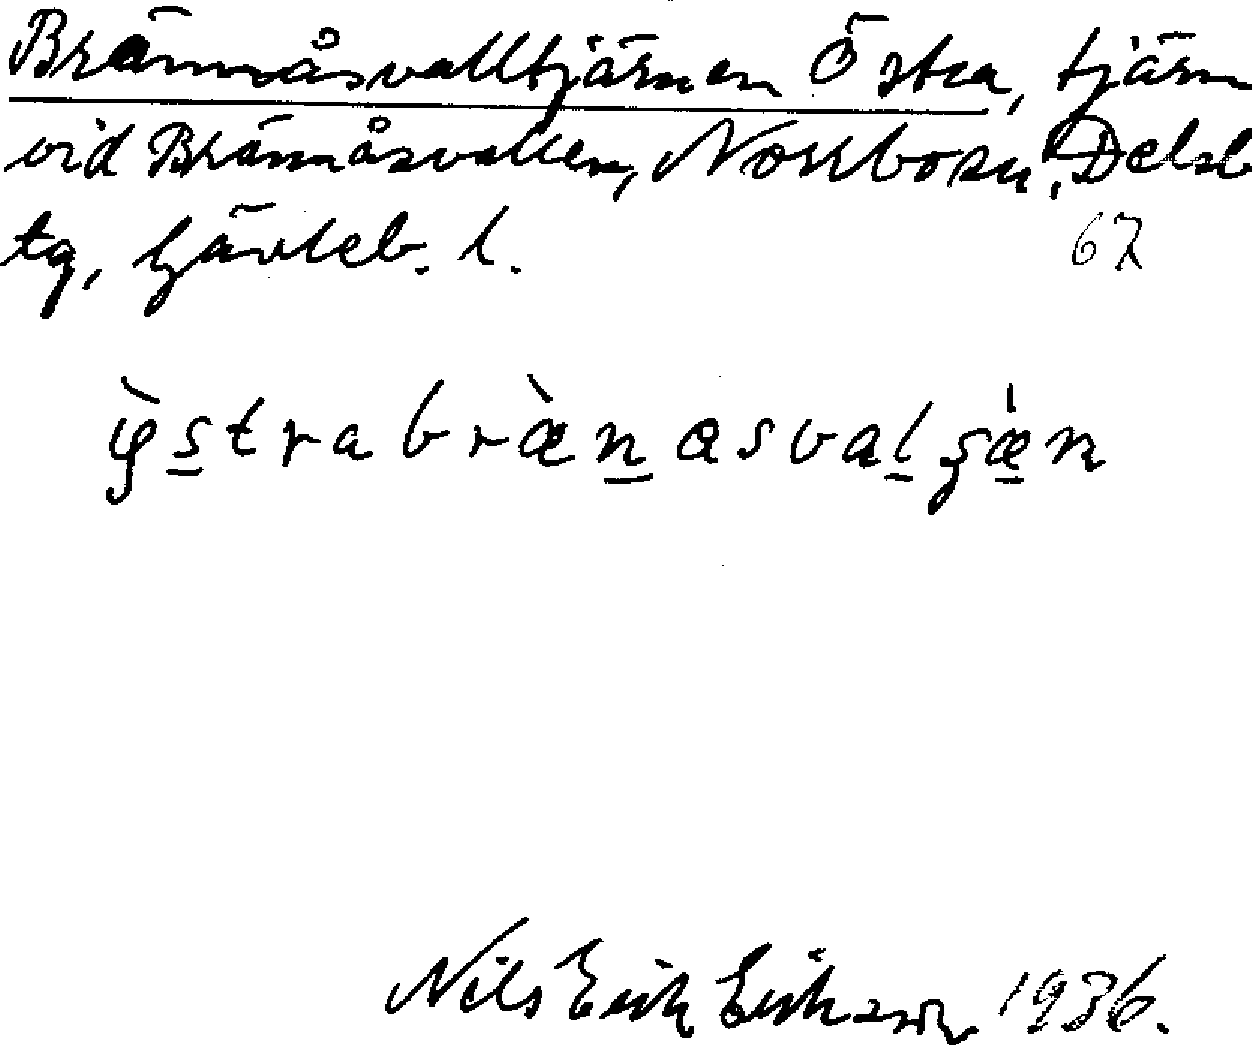 Brännåsvalltjärnen Östra, tjärn
vid Brännåsvallen, Norrbo sn, Delsb
tg, Gävleb. l.
67
ỳ̖s̲trabræ̀n̲asval̲ʒæ̲̍n
Nils Erik Eriksson 1936.